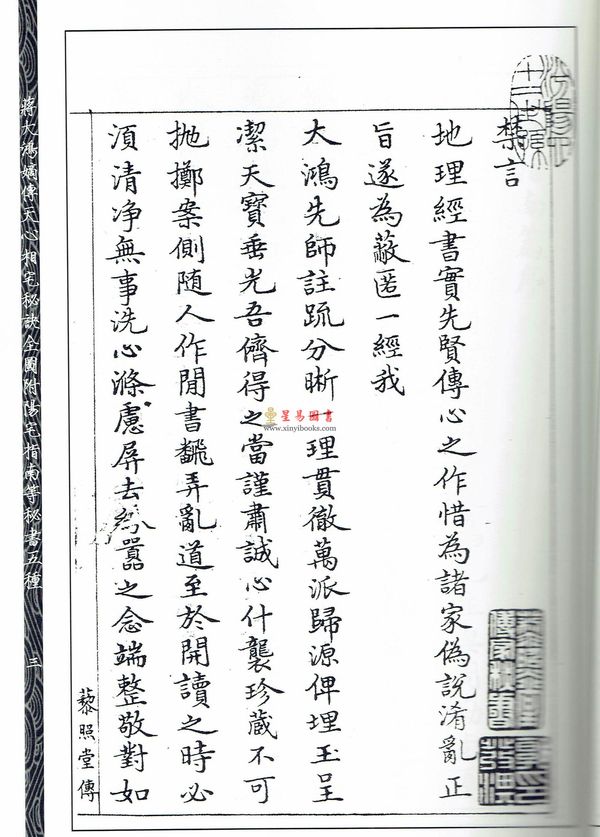 禁言
地理經書實先賢傳心之作惜為諸家偽說淆亂正
旨遂為蔽匿一經我
大鴻先師註疏分晰一理貫徹萬派歸源俾埋玉呈
潔天寶垂光吾儕得之當謹肅誠心什襲珍藏不可
抛擲案側隨人作閒書飜弄亂道至於開讀之時必
湏清净無事洗心滌慮屏去紛囂之念端整敬對如
藜照堂傳
蔣大鴻嫡傳天心相宅秘訣全圖附陽宅指南等秘書五種
三
星易圖書
www.xinyibooks.com